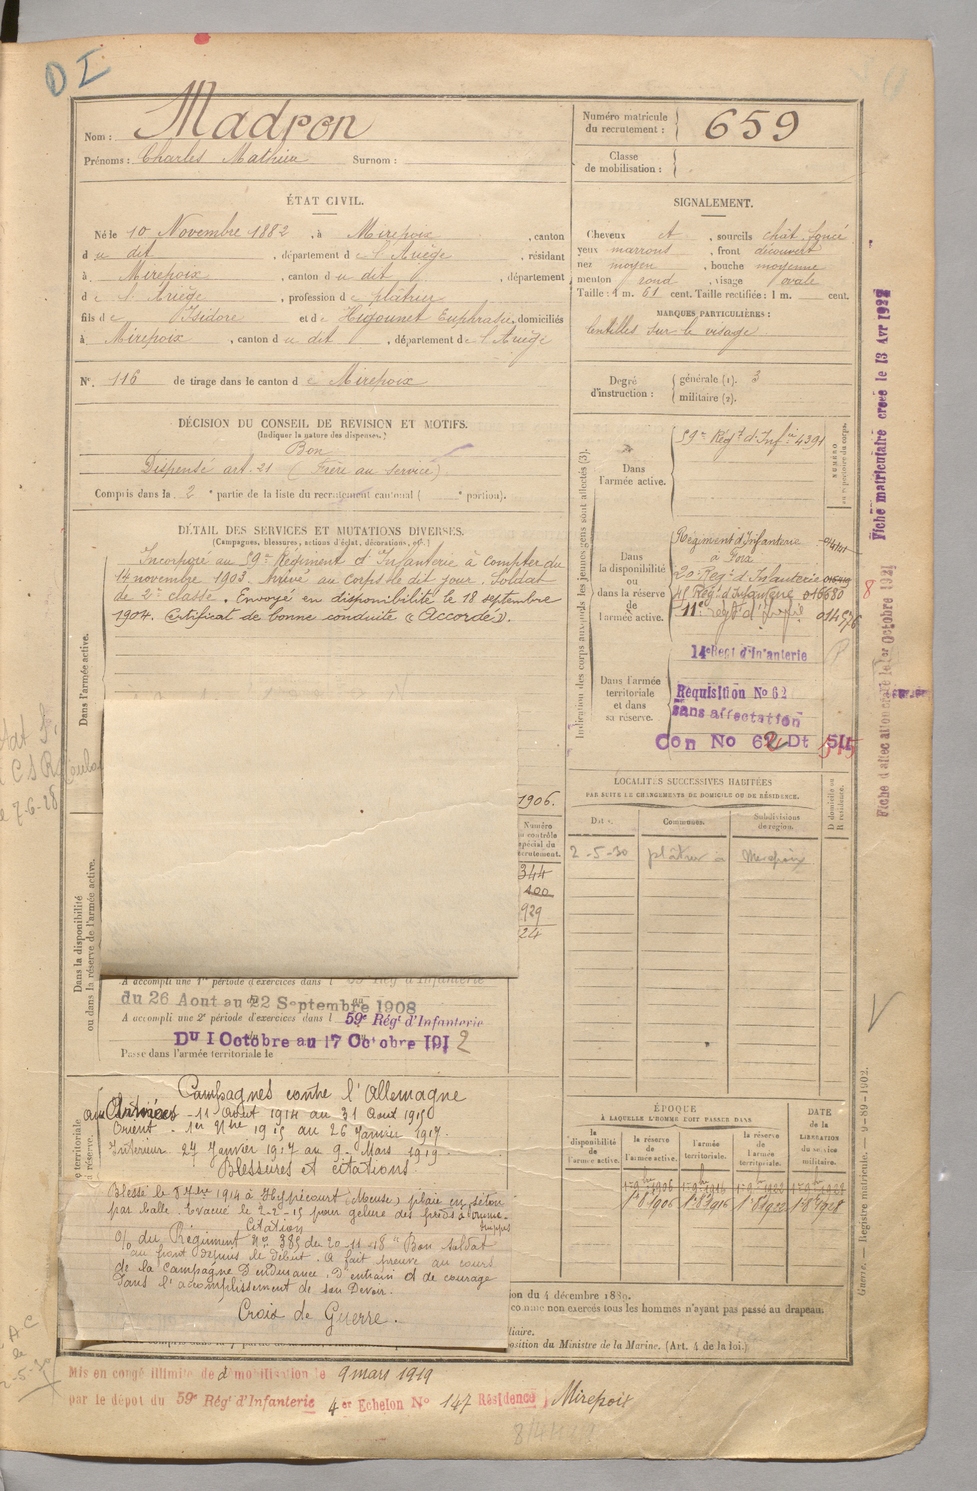 D I
Nom : Madron
Prénoms : Charles Mathieu Surnom :
Numéro matricule du recrutement : 659
Classe de mobilisation :
ÉTAT CIVIL.
Né le 10 Novembre 1882, à Mirepoix, canton
du dit, département de l'Ariège, résidant
à Mirepoix, canton du dit, département
de l'Ariège, profession de plâtrier
fils de Isidore et de Higounet Euphrasie, domiciliés
à Mirepoix, canton du dit, département de l'Ariège
N° 116 de tirage dans le canton de Mirepoix
SIGNALEMENT.
Cheveux et, sourcils chât. foncé
yeux marrons, front découvert
nez moyen, bouche moyenne
menton rond, visage ovale
Taille : 1 m. 61 cent. Taille rectifiée : 1 m. cent.
MARQUES PARTICULIÈRES :
lentilles sur le visage
Degré d'instruction : générale (1). 3
militaire (2).
DÉCISION DU CONSEIL DE RÉVISION ET MOTIFS.
(Indiquer la nature des dispenses.)
Bon
Dispensé art. 21 (Frère au service)
Compris dans la 2e partie de la liste du recrutement cantonal ( e portion).
DÉTAIL DES SERVICES ET MUTATIONS DIVERSES.
(Campagnes, blessures, actions d'éclat, décorations, etc.)
Incorporé au 59e Régiment d'Infanterie à compter du
14 novembre 1903. Arrivé au corps le dit jour. Soldat
de 2e classe. Envoyé en disponibilité le 18 septembre
1904. Certificat de bonne conduite « Accordé ».
Dans l'armée active.
Dans la disponibilité
ou dans la réserve de l'armée active.
1906.
Numéro
au contrôle
spécial du
recrutement.
344
400
929
24
A accompli une 1re période d'exercices dans l 59 Rég d'Infanterie
du 26 Aout au 22 Septembre 1908
A accompli une 2e période d'exercices dans l 59e Régt d'Infanterie
Du 1 Octobre au 17 Octobre 1912
Passé dans l'armée territoriale le
Campagnes contre l'Allemagne
aux Armées - 11 Août 1914 au 31 Aout 1915
Orient - 1er 1915 au 26 Janvier 1917.
Intérieur. 27 Janvier 1917 au 9 Mars 1919.
Blessures et citations
Blessé le 8 7bre 1914 à Heippécourt (Meuse) plaie en séton
par balle. Evacué le 2-2-15 pour gelure des pieds à
Citation
O/ du Régiment No 385 du 20-11-18 "Bon soldat
au front depuis le début. A fait preuve au cours
de la campagne d'endurance, d'entrain et de courage
dans l'accomplissement de son devoir.
Croix de Guerre.
Indication des corps auxquels les jeunes gens sont affectés (3).
NUMÉRO
au répertoire du corps.
Dans l'armée active.
59e Régt d'Infie 4391
Dans la disponibilité ou dans la réserve de l'armée active.
Régiment d'Infanterie
à Foix
20e Régt d'Infanterie
Régt d'Infanterie 016680
11e
14e Regt d'Infanterie
Dans l'armée territoriale et dans sa réserve.
Requisition No 62
sans affectation
Con No 62 Dt
8
Fiche matriculaire creee le 13 Avr 1922
Fiche d'affectation 1er Octobre 1921
LOCALITÉS SUCCESSIVES HABITÉES
PAR SUITE DE CHANGEMENTS DE DOMICILE OU DE RÉSIDENCE.
Dates. Communes. Subdivisions de région. D domicile ou R résidence.
2-5-30 plâtrier à Mirepoix
ÉPOQUE
À LAQUELLE L'HOMME DOIT PASSER DANS
DATE
de la
LIBÉRATION
du service
militaire.
la disponibilité de l'armée active.
la réserve de l'armée active.
l'armée territoriale.
la réserve de l'armée territoriale.
1er 8bre 1906 1er 8bre 1916 1er 8bre 1922 1er 8bre 1928
ion du 4 décembre 1889.
comme non exercés tous les hommes n'ayant pas passé au drapeau.
liaire.
position du Ministre de la Marine. (Art. 4 de la loi.)
Guerre. — Registre matricule. — 9-89-1902.
Mis en congé illimité de démobilisation le 9 mars 1919
par le dépot du 59e Rég d'Infanterie 4er Echelon No 147 Résidence Mirepoix